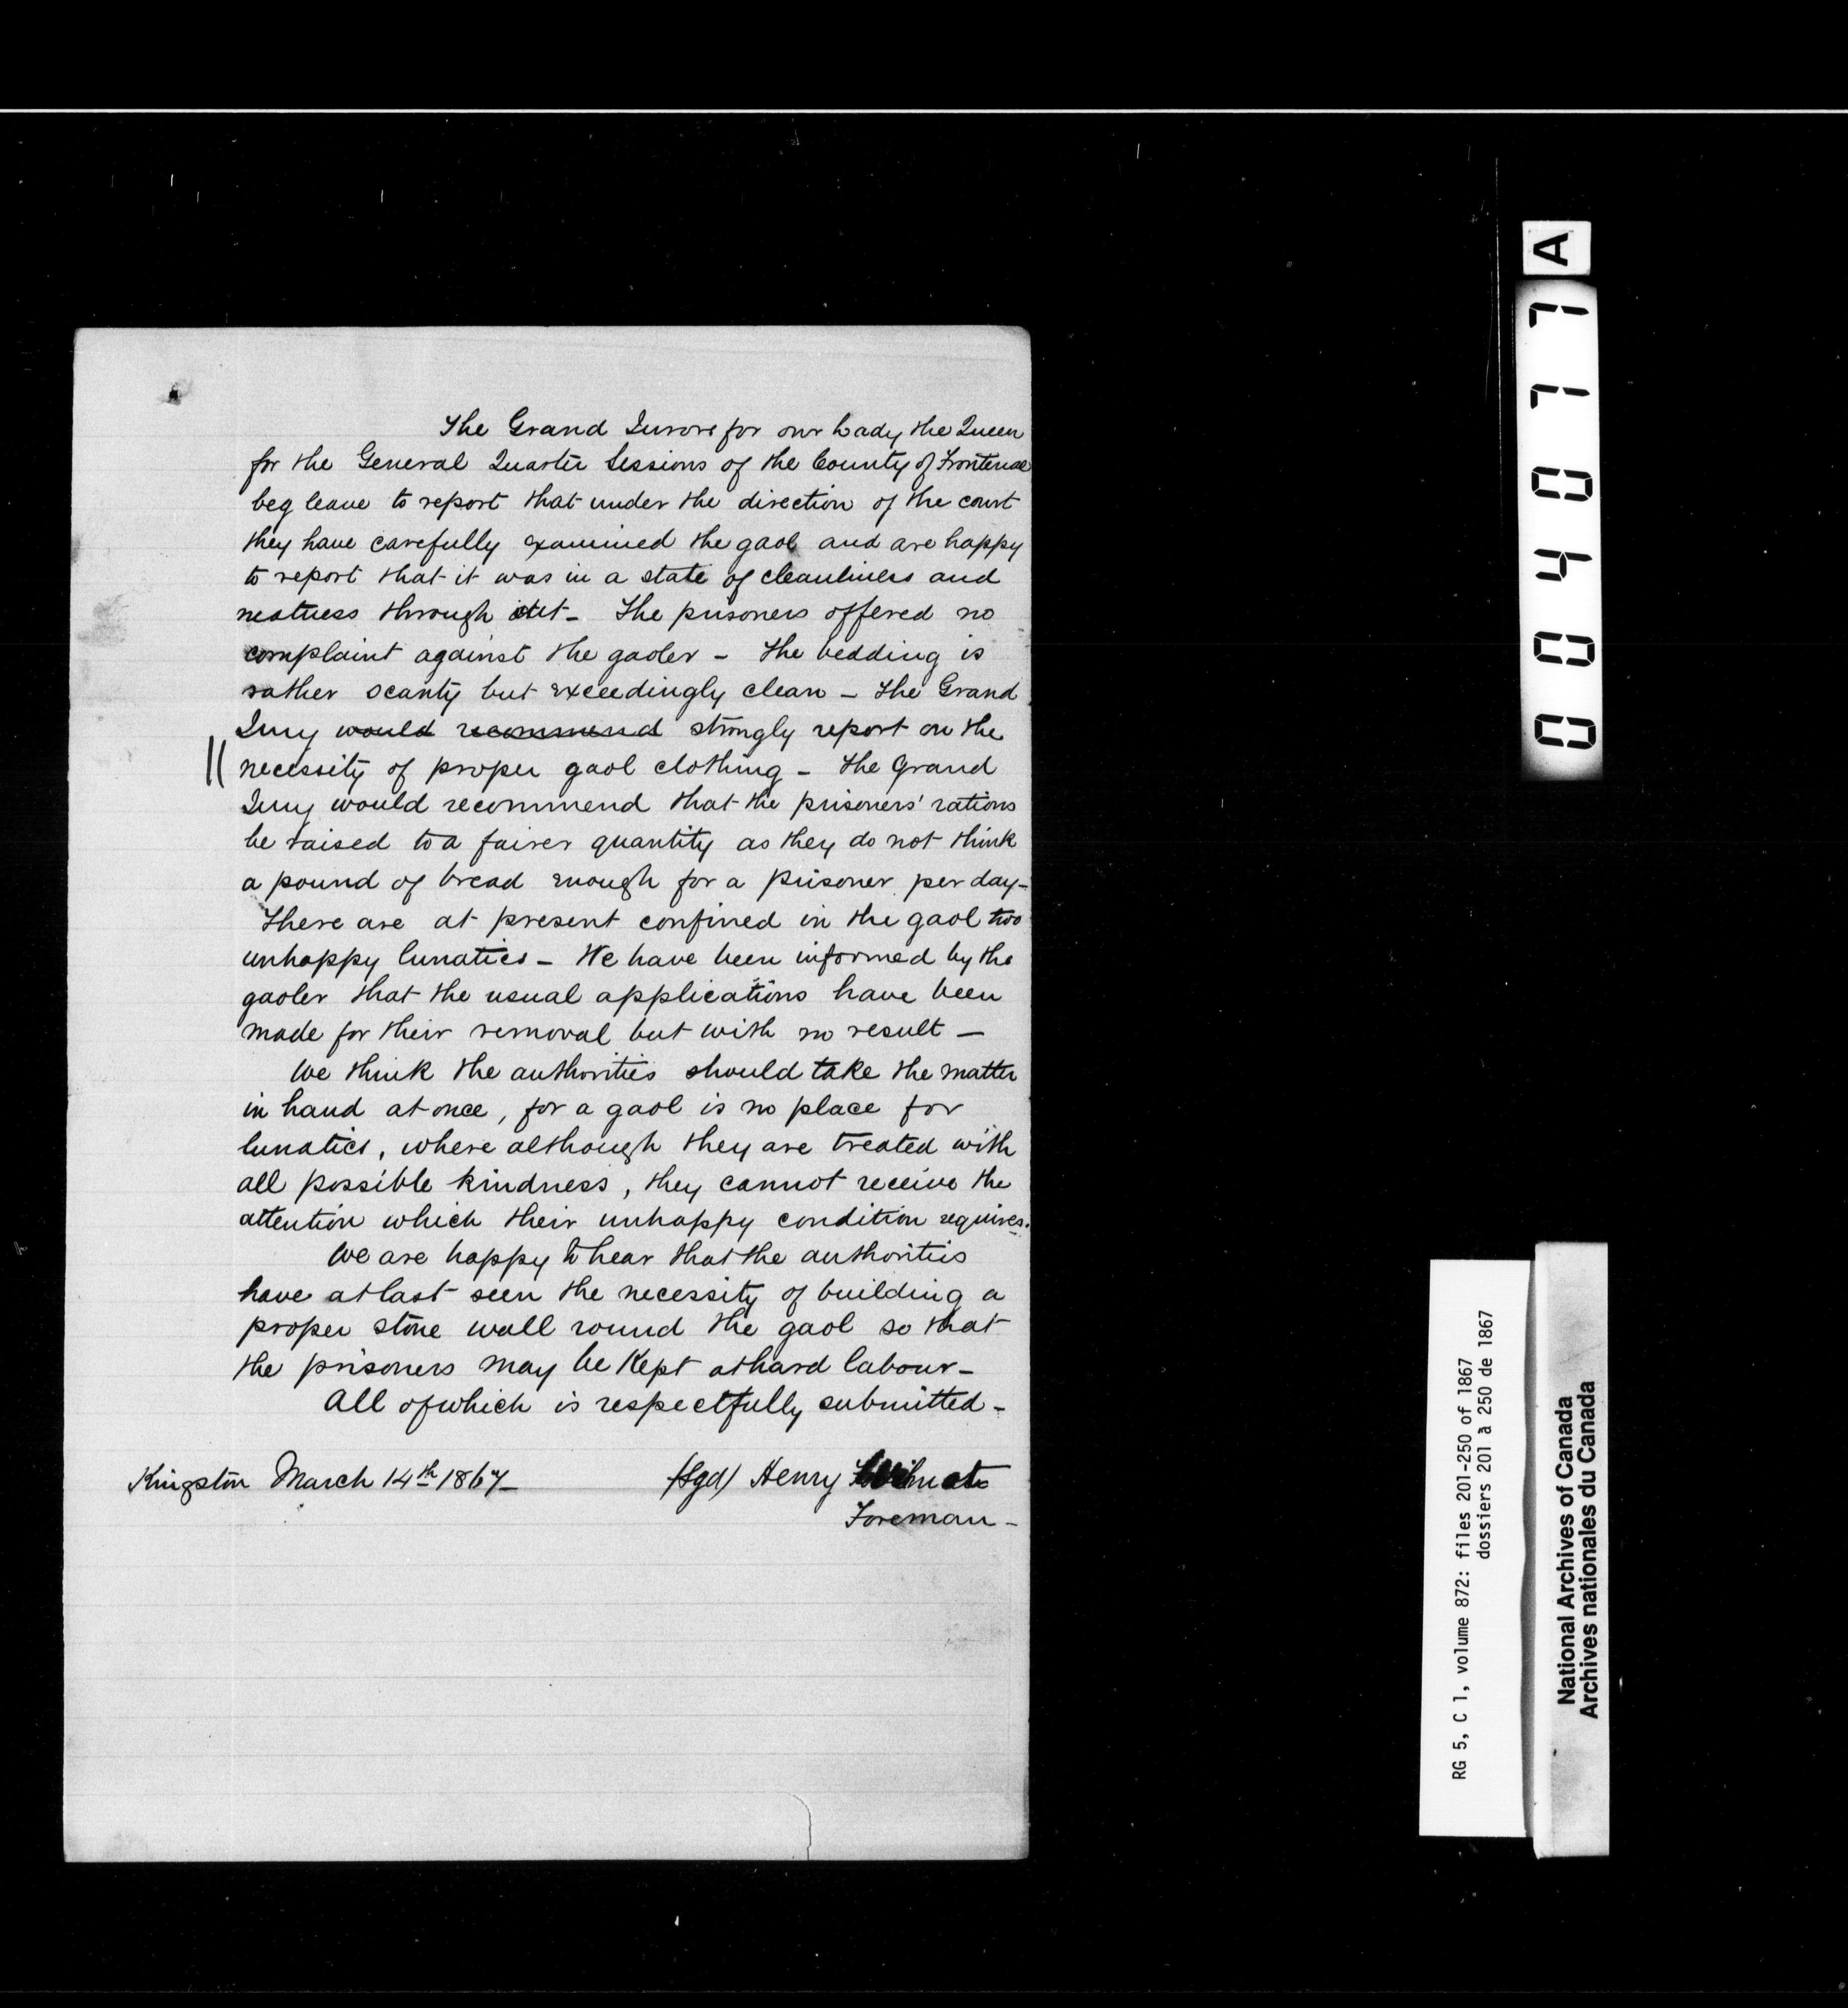 The Grand Jurors for our Lady the Queen
for the General Quarter Sessions of the County of Frontenac
beg leave to report that under the direction of the court
they have carefully examined the gaol and are happy
to report that it was in a state of cleanliness and
neatness through out - The prisoners offered no
complaint against the gaoler - The bedding is
rather scanty but exceedingly clean - The Grand
Jury would recommend strongly report on the
necessity of proper gaol clothing - The Grand
Jury would recommend that the prisoners' rations
be raised to a fairer quantity as they do not think
a pound of bread enough for a prisoner per day -
There are at present confined in the gaol two
unhappy lunatics - We have been informed by the
gaoler that the usual applications have been
made for their removal but with no result -
We think the authorities should take the matter
in hand at once, for a gaol is no place for
lunatics, where although they are treated with
all possible kindness, they cannot receive the
attention which their unhappy condition requires.
We are happy to hear that the authorities
have at last seen the necessity of building a
proper stone wall round the gaol so that
the prisoners may be kept at hard labour -
All of which is respectfully submitted -
Kingston March 14th 1867 - (Sgd) Henry
Foreman -
A
004077
RG 5, C 1, volume 872: files 201-250 of 1867
dossiers 201 à 250 de 1867
National Archives of Canada
Archives nationales du Canada